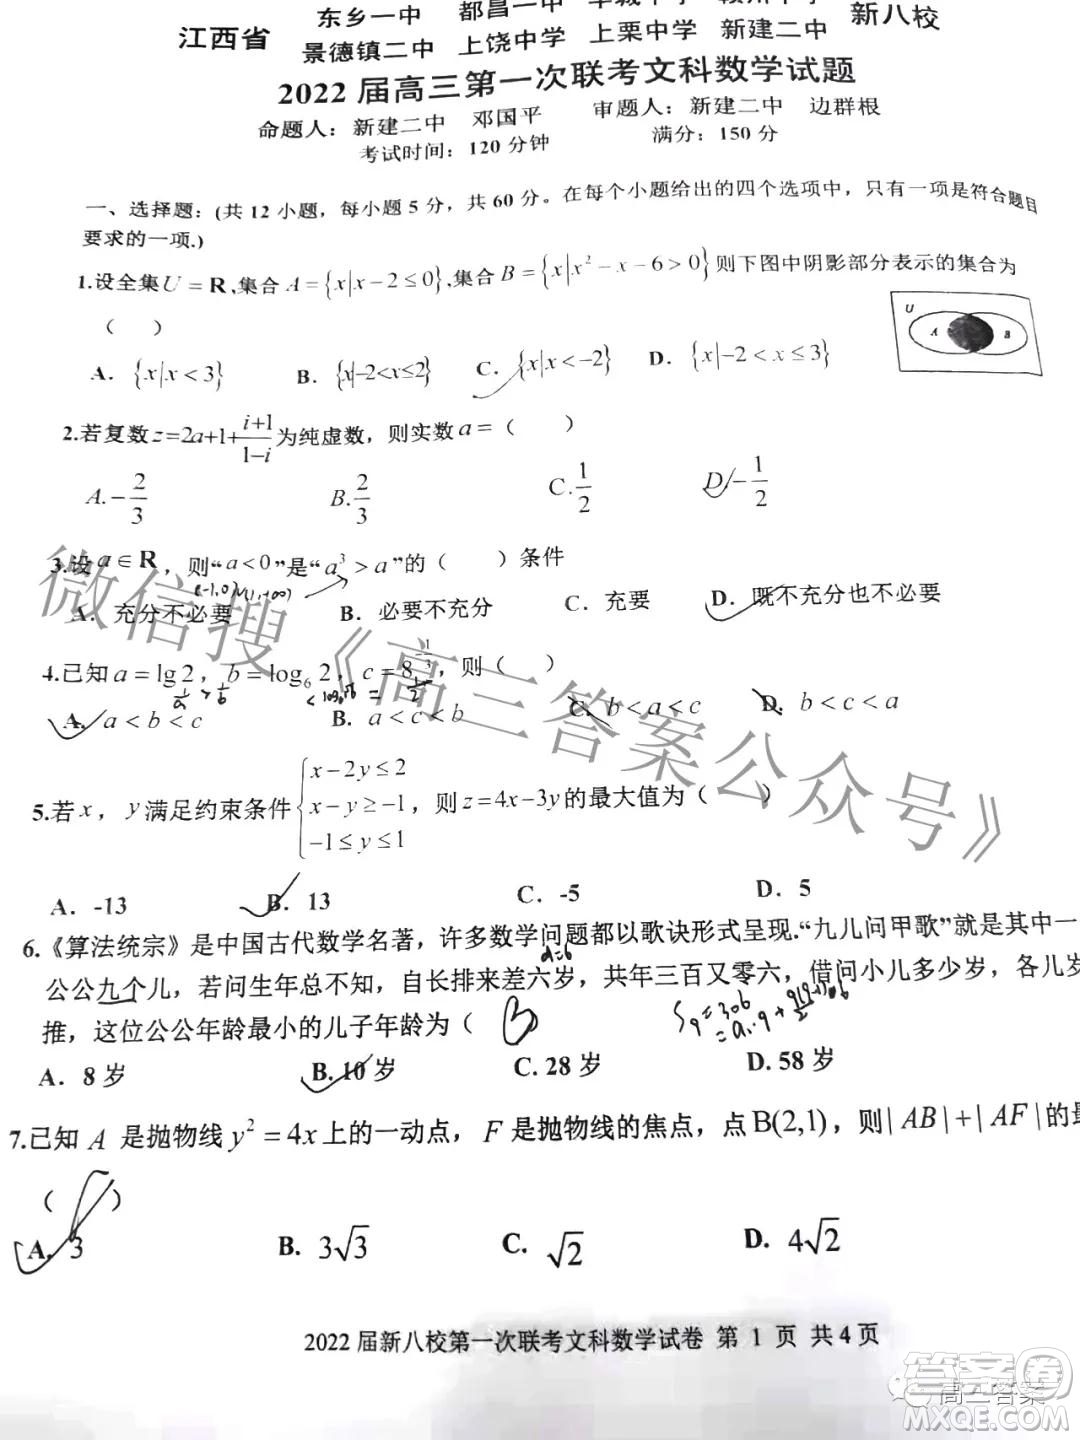 江西省 东乡一中 都昌一中 新八校
景德镇二中 上饶中学 上栗中学 新建二中
2022届高三第一次联考文科数学试题
命题人：新建二中 邓国平 审题人：新建二中 边群根
考试时间：120分钟 满分：150分
一、选择题：(共12小题，每小题5分，共60分。在每个小题给出的四个选项中，只有一项是符合题目
要求的一项.)
1.设全集U=R,集合A={x|x-2≤0},集合B={x|x²-x-6>0}则下图中阴影部分表示的集合为
（ ）
U A B
A. {x|x<3} B. {x|-2<x≤2} C. {x|x<-2} D. {x|-2<x≤3}
2.若复数z=2a+1+(i+1)/(1-i)为纯虚数，则实数a=（ ）
A.-2/3 B.2/3 C.1/2 D.-1/2
3.设a∈R，则“a<0”是“a³>a”的（ ）条件
(-1,0)∪(1,+∞)
A．充分不必要 B．必要不充分 C．充要 D．既不充分也不必要
4.已知a=lg2，b=log₆2，c=8^(-1/3)，则（ ）
A. a<b<c B. a<c<b C. b<a<c D. b<c<a
5.若x，y满足约束条件{x-2y≤2 x-y≥-1 -1≤y≤1，则z=4x-3y的最大值为（ ）
A．-13 B．13 C．-5 D．5
6.《算法统宗》是中国古代数学名著，许多数学问题都以歌诀形式呈现.“九儿问甲歌”就是其中一
d=6
公公九个儿，若问生年总不知，自长排来差六岁，共年三百又零六，借问小儿多少岁，各儿岁
推，这位公公年龄最小的儿子年龄为（ B
S₉=306
A．8岁 B. 10岁 C. 28岁 D. 58岁
7.已知A是抛物线y²=4x上的一动点，F是抛物线的焦点，点B(2,1)，则|AB|+|AF|的最
（ ）
A. 3 B. 3√3 C. √2 D. 4√2
2022届新八校第一次联考文科数学试卷 第1页 共4页
微信搜《高三答案公众号》
高三答案
答案圈
MXQE.COM